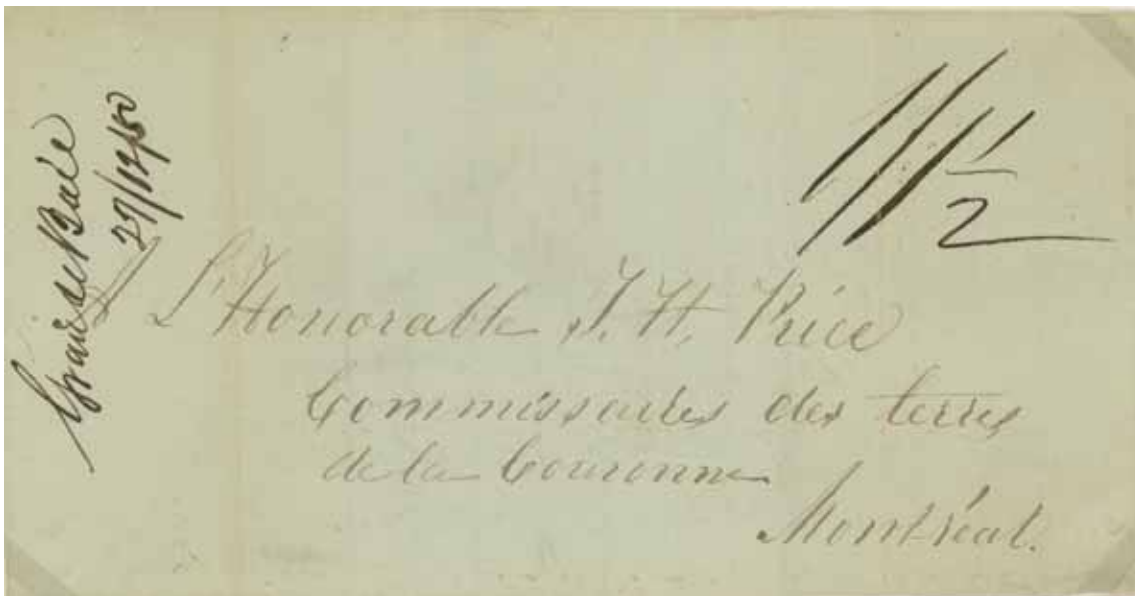 Grande Baie
27/12/50
1/1½
A L'Honorable J. H. Price
Commissaires des terres
de la Couronne
Montréal.